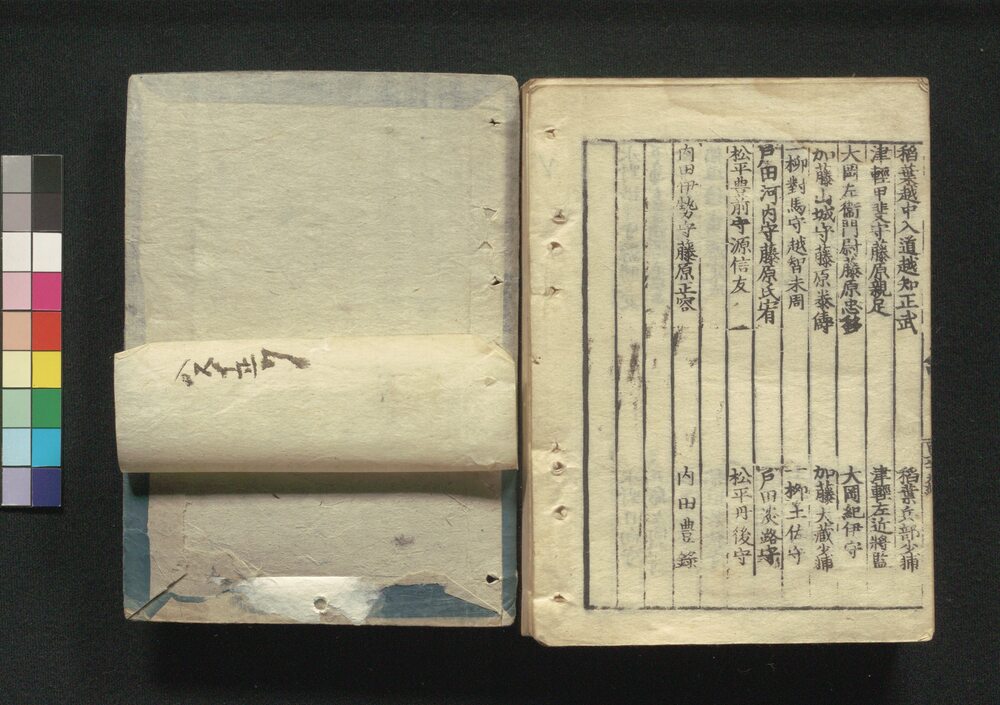 稲葉越中入道越知正武
稲葉兵部少輔
津輕甲斐守藤原親足
津輕左近將監
大岡左衞門尉藤原忠移
大岡紀伊守
加藤山城守藤原泰儔
加藤大藏少輔
一柳對馬守越智末周
一柳土佐守
戸田河内守藤原氏宥
戸田淡路守
松平豊前守源信友
松平丹後守
内田伊勢守藤原正容
内田豊録